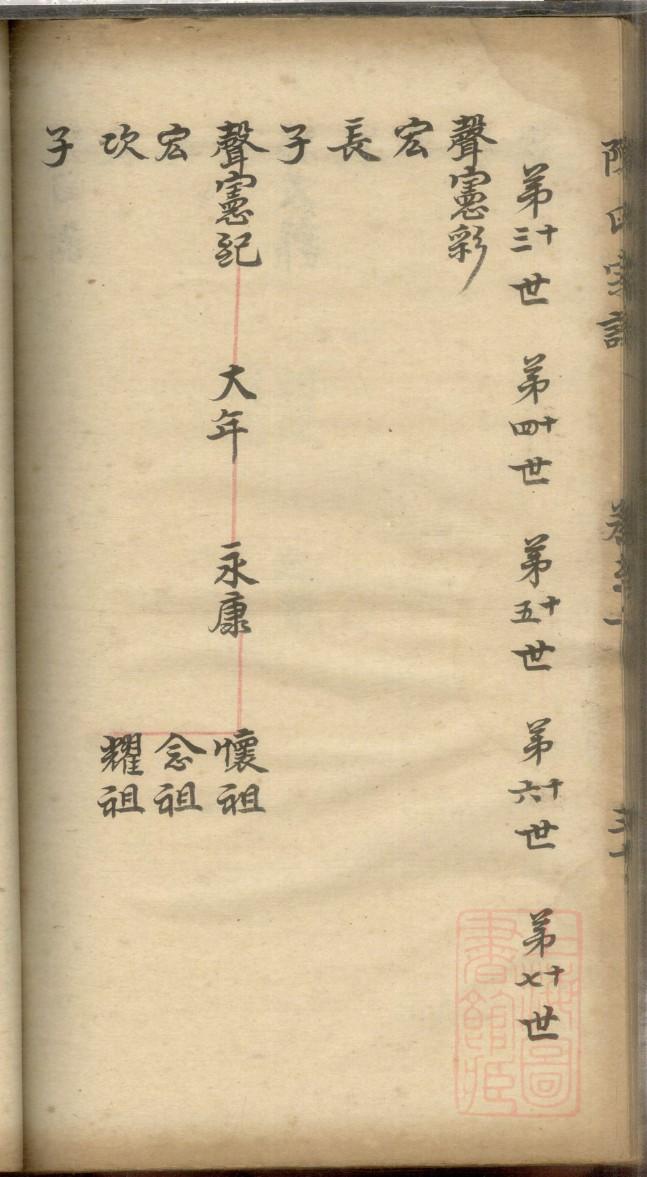 第十三世 第十四世 第十五世 第十六世 第十七世
聲憲彩
宏
長
子
聲憲紀 大年 永康 懷祖
宏 念祖
次 耀祖
子
上海圖
書館藏